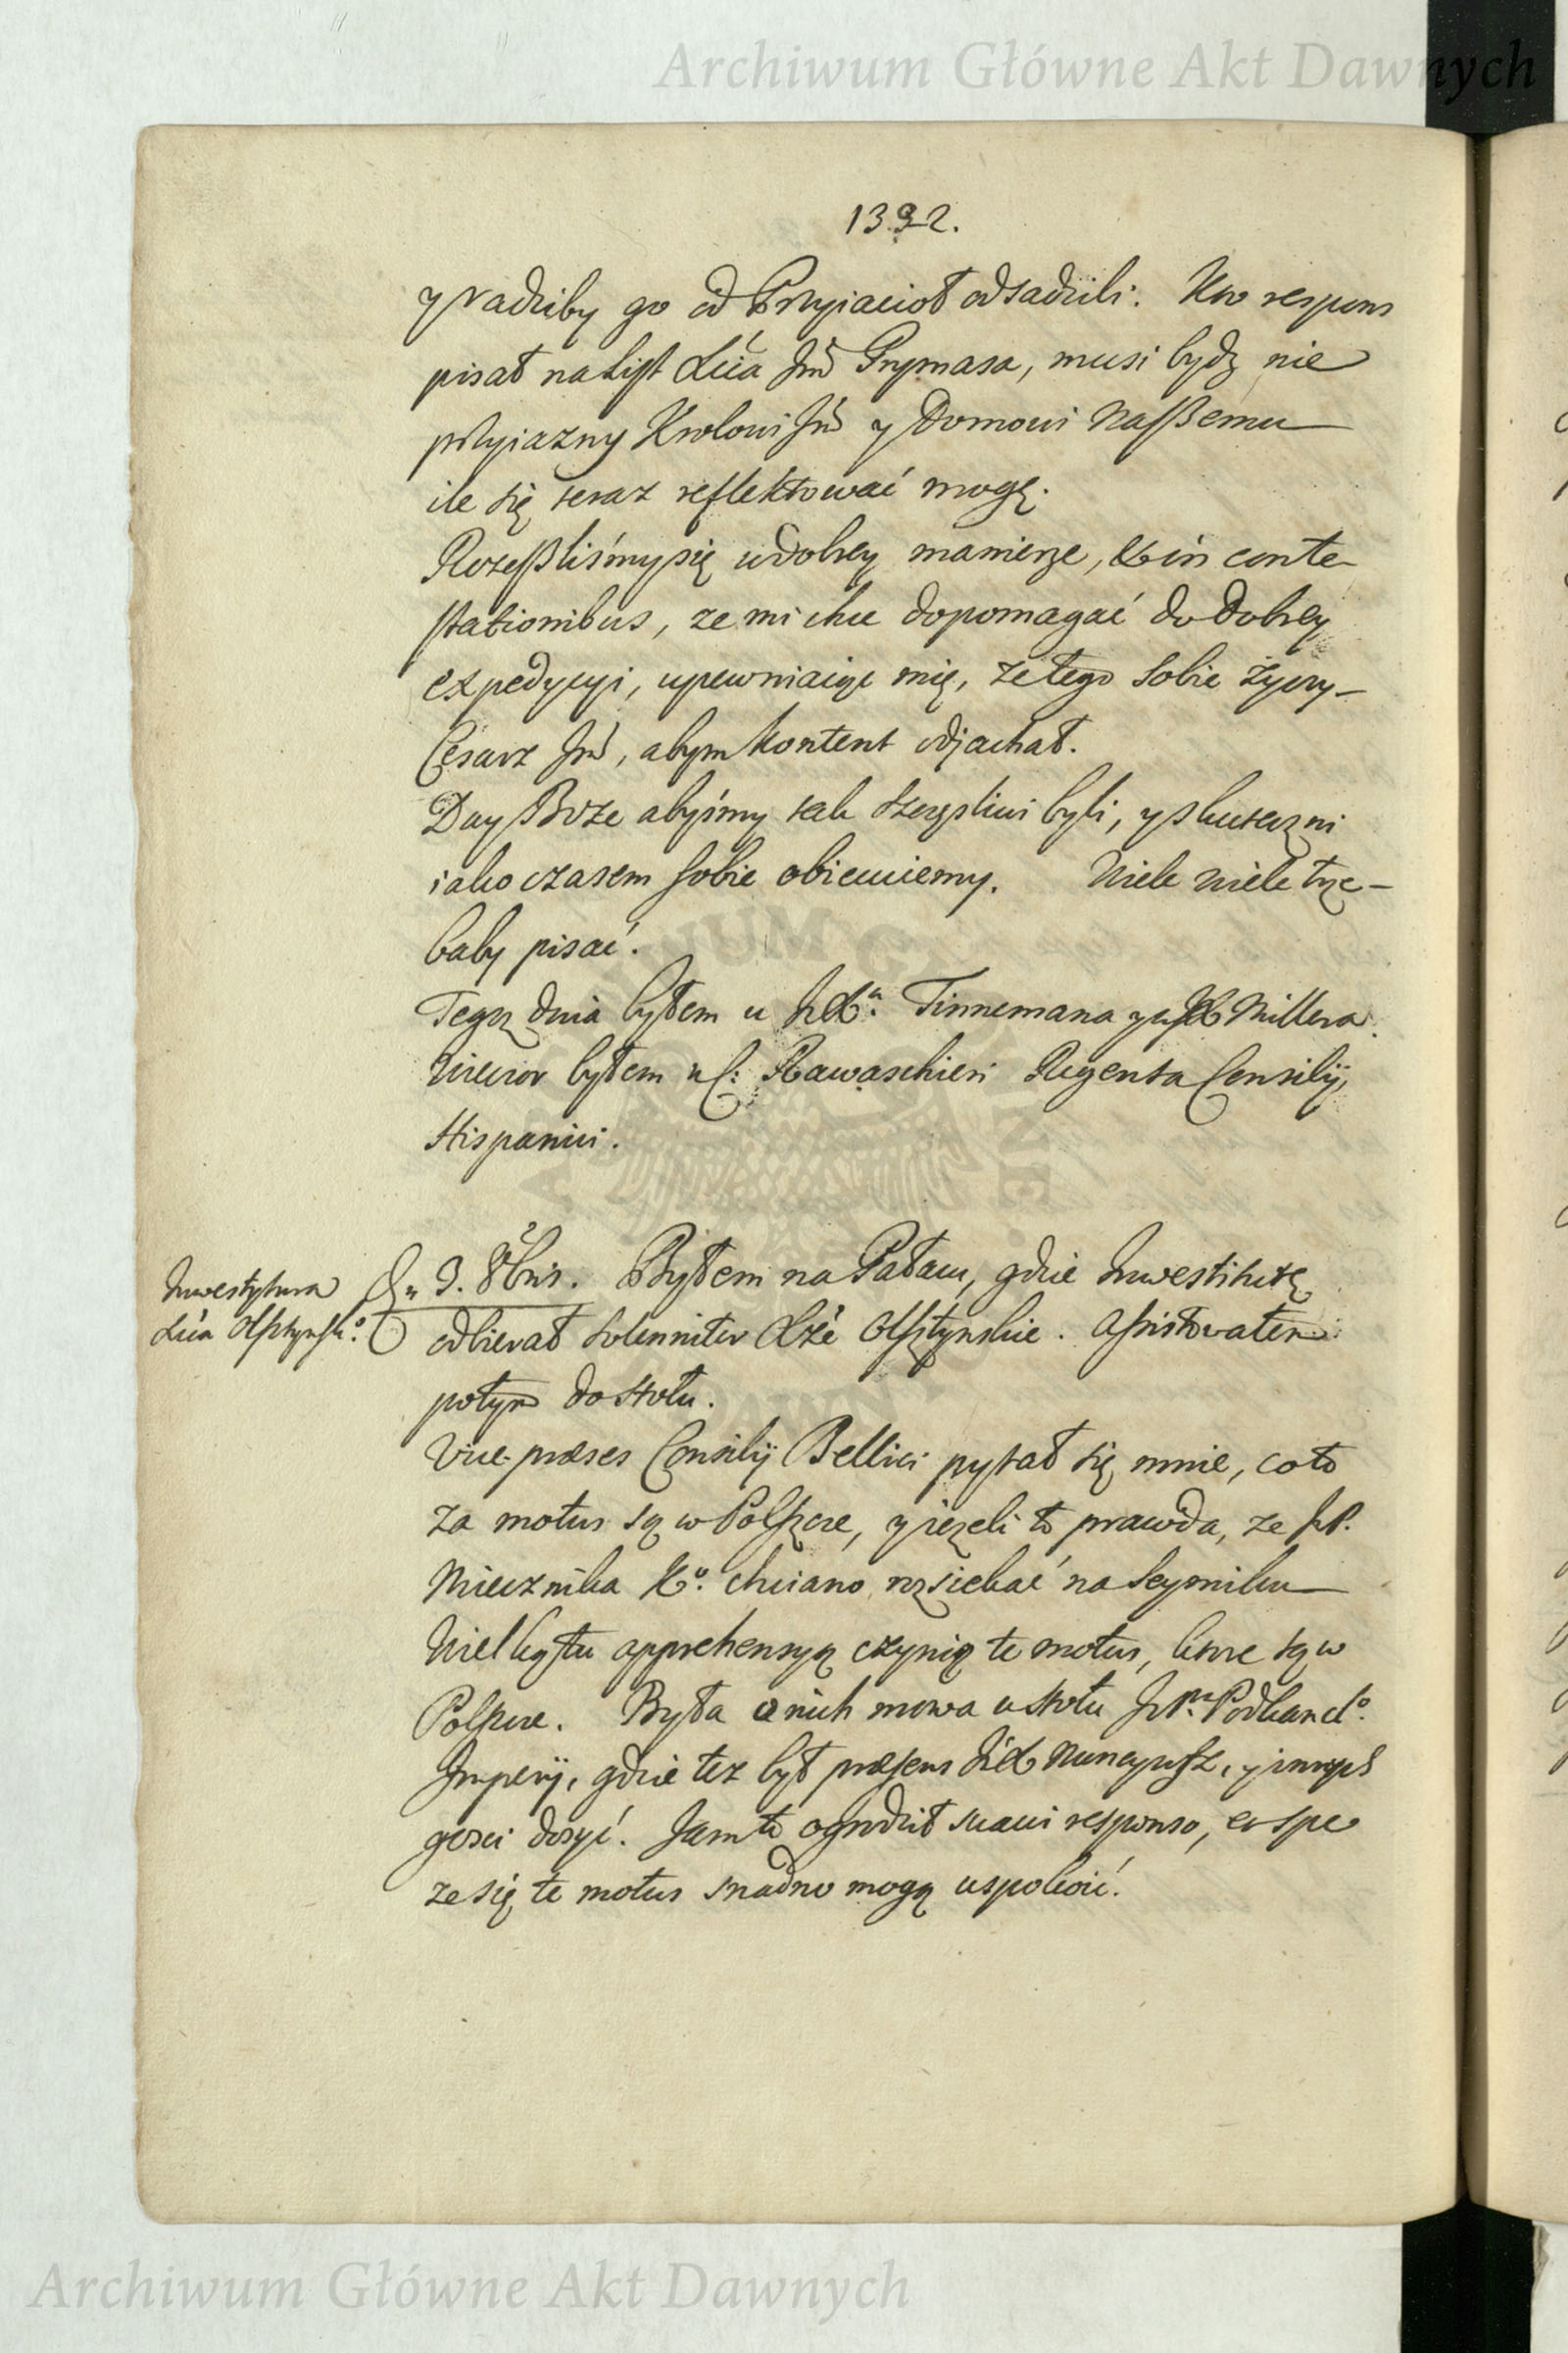 Archiwum Główne Akt Dawnych
1392.
y radziby go od Przyiacioł odsadzili. Kto respons
pisał na List Xcia Jmci Prymasa, musi bydz nie
przyiazny Krolowi Jmci y Domowi Naszemu
ile się teraz reflektować mogę.
Rozeszliśmy się w dobrey manierze, & in conte-
stationibus, ze mi chce dopomagać do dobrey
expedycyi, upewniaiąc mię, ze tego sobie życzy
Cesarz Jmc, abym kontent odjachał.
Day Boze abyśmy tak szczęśliwi byli, y skuteczni
iako czasem sobie obiecuiemy. Wiele wiele trze-
baby pisać.
Tegoz dnia byłem u JX.a Tinnemana y u JX Millera.
Wieczor byłem u C: Rawaschieri Regenta Consilij
Hispanici.
Inwestytura
Xcia Olsztynsk.o
D. 9. 8bris. Byłem na Pałacu, gdzie Inwestiturę
odbierał solenniter Xże Olsztynskie. Assistowałem
potym do stołu.
Vice-præses Consilij Bellici pytał się mnie, co to
za motus są w Polszcze, y jezeli to prawda, ze JP.
Miecznika K.o chciano rozsiekać na Seymiku
Wielką tu apprehensyą czynią te motus, ktore są w
Polszcze. Była o nich mowa u stołu JP.a Podkancl.o
Imperij, gdzie tez był præsens JX Nuncyusz, y innych
gosci dosyć. Jam to ogrodził suavi responso, et spe
ze się te motus snadno mogą uspokoić.
Archiwum Główne Akt Dawnych